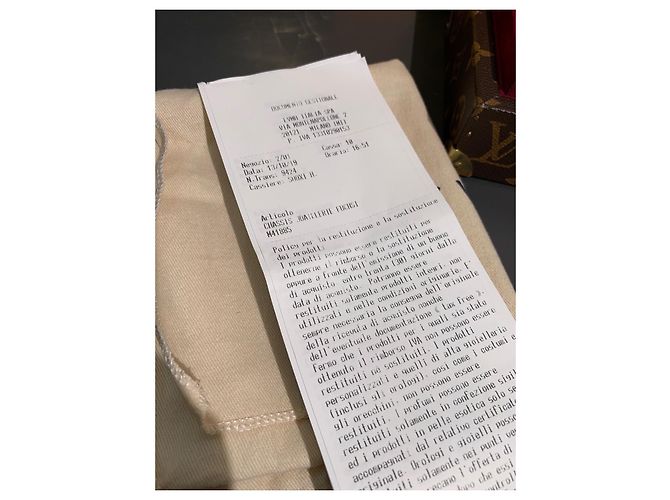 DOCUMENTO GESTIONALE
LVMH ITALIA SPA
VIA MONTENAPOLEONE 2
20121 MILANO (MI)
P. IVA 13310290153
Negozio: 2/01 Cassa: 10
Data: 13/10/19 Orario: 16:51
N.Trans: 9424
Cassiere: SHOXJ H.
Articolo
CHASSIS JOAILLERIE FUCHSI
M41005
Policy per la restituzione e la sostituzione
dei prodotti
I prodotti possono essere restituiti per
ottenerne il rimborso o la sostituzione
oppure a fronte dell'emissione di un buono
di acquisto entro trenta (30) giorni dalla
data di acquisto. Potranno essere
restituiti solamente prodotti integri, non
utilizzati e nelle condizioni originarie. E'
sempre necessaria la consegna dell'originale
della ricevuta di acquisto nonché
dell'eventuale documentazione « tax free »,
fermo che i prodotti per i quali sia stato
ottenuto il rimborso IVA non possono essere
restituiti né sostituiti. I prodotti
personalizzati e quelli di alta gioielleria
(inclusi gli orologi), così come i costumi e
gli orecchini, non possono essere
restituiti. I profumi possono essere
restituiti solamente in confezione sigil
ed i prodotti in pelle esotica solo se
accompagnati dal relativo certificat
originale. Orologi e gioielli posso
restituiti solamente nei punti ve
recano l'offerta di
che essi
LV